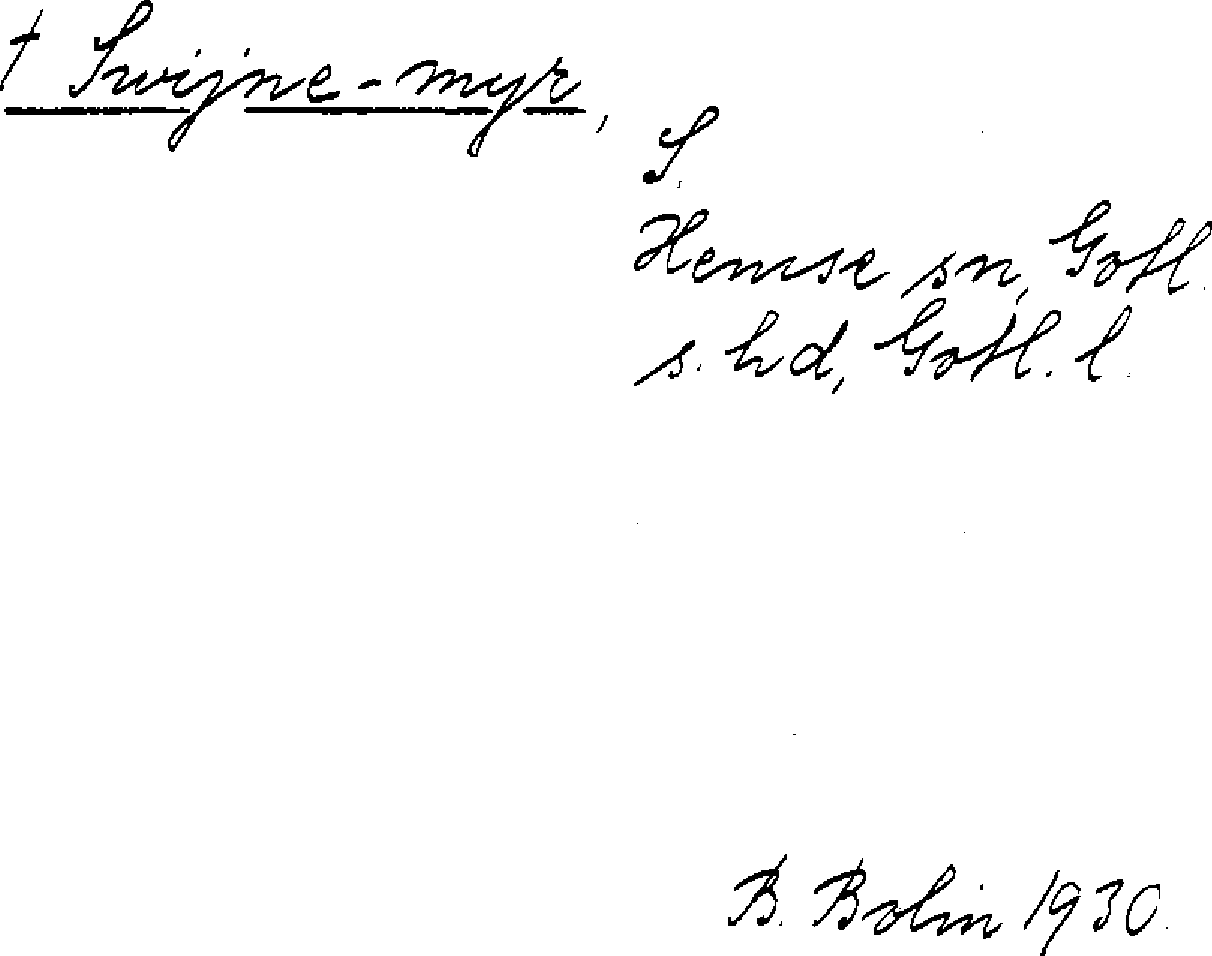 † Swijne-myr,
S.
Hemse sn, Gotl.
s. hd, Gotl. l.
B. Bolin 1930.